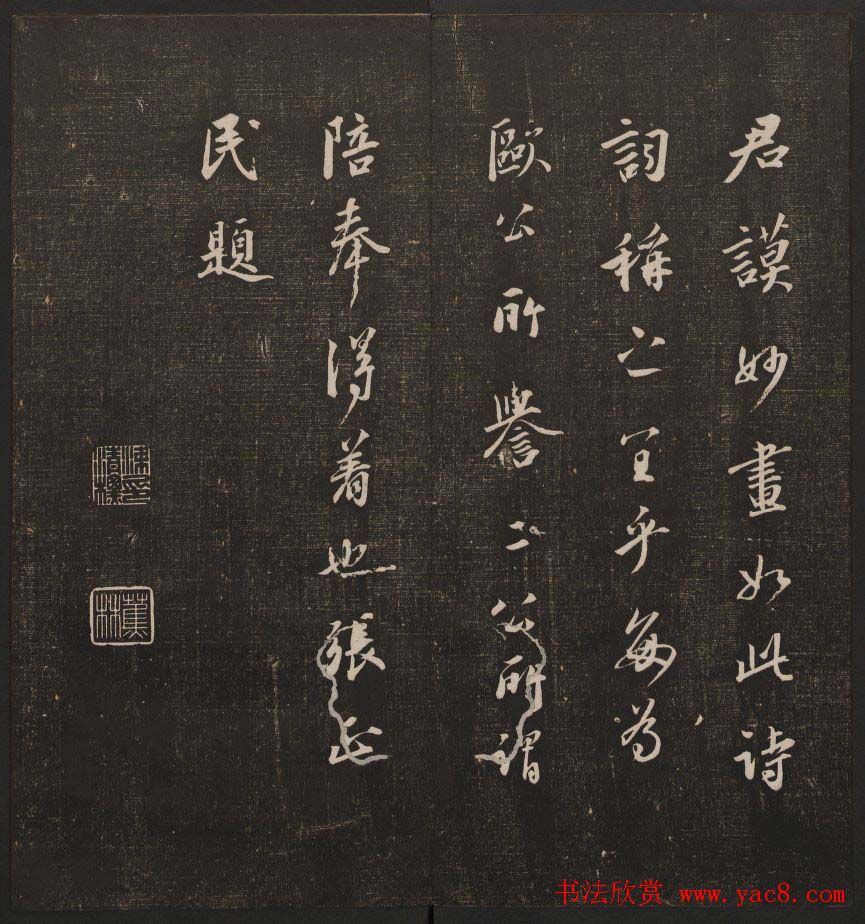 君謨妙畫如此诗
詞稱之宜乎每為
歐公所譽二公所謂
陪奉得着也張正
民題
蕉林
书法欣赏 www.yac8.com